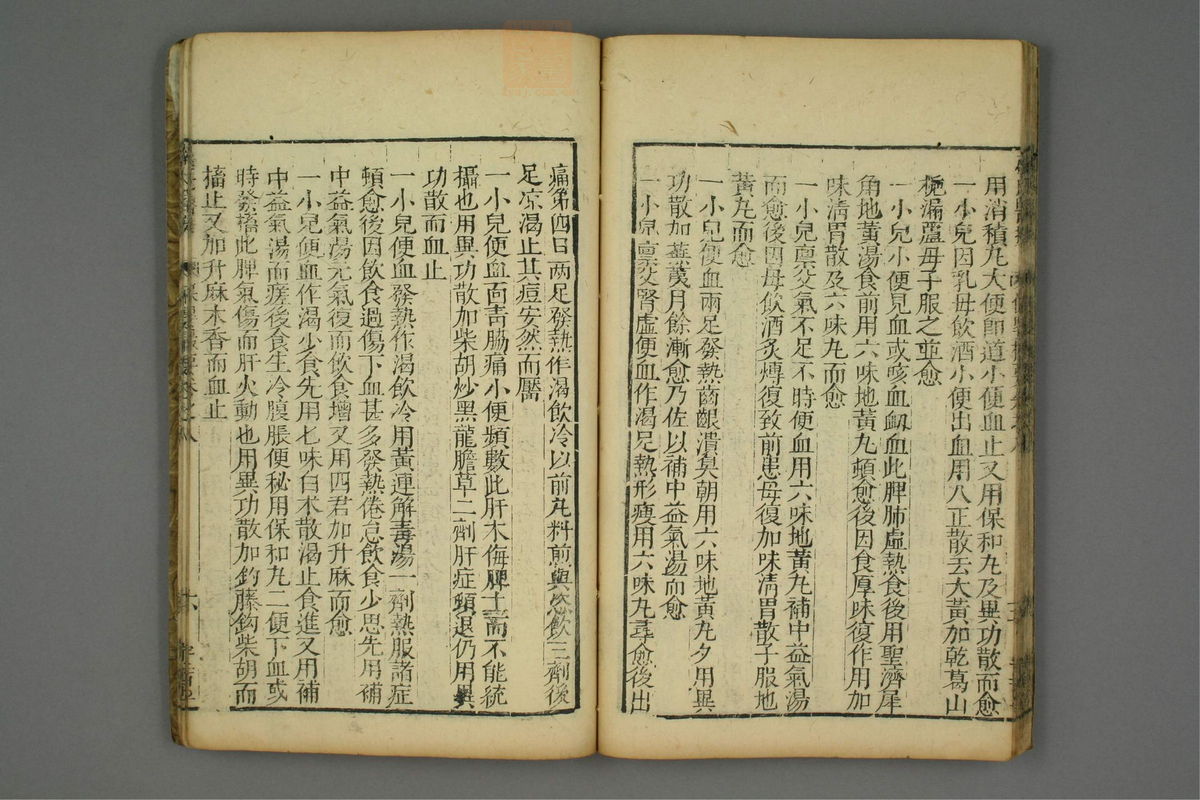 用消積丸大便卽道小便血止又用保和丸及異功散而愈
一小兒因乳母飲酒小便出血用八正散去大黃加乾葛山
梔漏蘆母子服之並愈
一小兒小便見血或咳血衂血此脾肺虛熱食後用聖濟犀
角地黃湯食前用六味地黃丸頓愈後因食厚味復作用加
味淸胃散及六味丸而愈
一小兒禀父氣不足不時便血用六味地黃丸補中益氣湯
而愈後因母飲酒炙煿復致前患母復加味淸胃散子服地
黃丸而愈
一小兒便血兩足發熱齒齦潰臭朝用六味地黃丸夕用異
功散加蕪荑月餘漸愈乃佐以補中益氣湯而愈
一小兒禀父腎虛便血作渴足熱形瘦用六味丸尋愈後出
痘第四日兩足發熱作渴飲冷以前丸料煎與恣飲三劑後
足凉渴止其痘安然而靨
一小兒便血面靑脇痛小便頻數此肝木侮脾土而不能統
攝也用異功散加柴胡炒黑龍膽草二劑肝症頓退仍用異
功散而血止
一小兒便血發熱作渴飲冷用黃連解毒湯一劑熱服諸症
頓愈後因飲食過傷下血甚多發熱倦怠飲食少思先用補
中益氣湯元氣復而飲食增又用四君加升麻而愈
一小兒便血作渴少食先用七味白术散渴止食進又用補
中益氣湯而瘥後食生冷腹脹便秘用保和丸二便下血或
時發搐此脾氣傷而肝火動也用異功散加釣藤鈎柴胡而
搐止又加升麻木香而血止